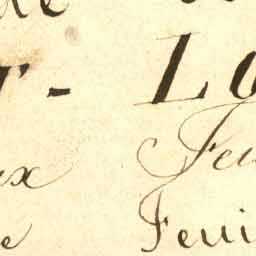 de
T- LO
ux Feu
e Feui